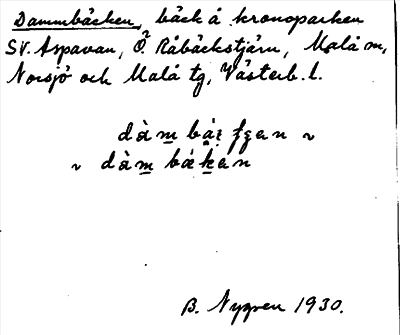 Dammbäcken, bäck å kronoparken
SV. Aspavan, Ö. Råbäckstjärn, Malå m,
Norsjö och Malå tg, Västerb. l.
B. Nygren 1930.